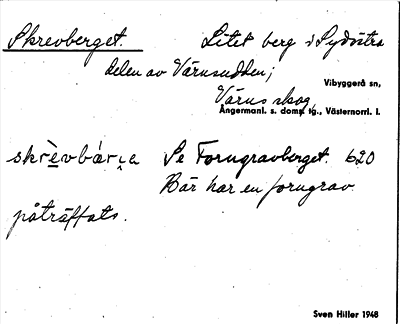 Skrevberget. Litet berg i Sydöstra
delen av Värnsudden;
Vibyggerå sn,
Värns skog.
Ångermanl. s. doms. tg., Västernorrl. l.
skrèvbárı̨a Se Forngravberget. 620
Här har en forngrav
påträffats.
Sven Hiller 1948